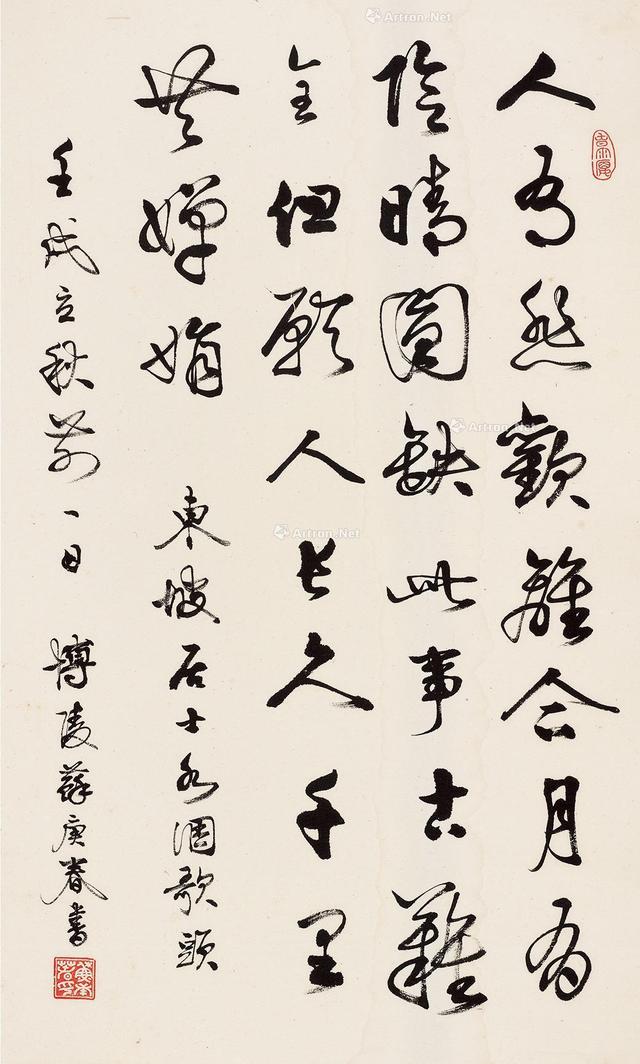 人有悲歡離合月有
陰晴圓缺此事古難
全但願人長久千里
共嬋娟
東坡居士水調歌頭
壬戌立秋前一日 博陵蘇庚春書
Artron.Net
Artron.Net
Artron.Net